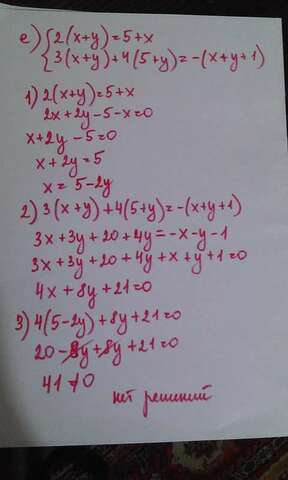 е) { 2(x+y)=5+x
3(x+y)+4(5+y)=-(x+y+1)
1) 2(x+y)=5+x
2x+2y-5-x=0
x+2y-5=0
x+2y=5
x= 5-2y
2) 3(x+y)+4(5+y)=-(x+y+1)
3x+3y+20+4y=-x-y-1
3x+3y+20+4y+x+y+1=0
4x+8y+21=0
3) 4(5-2y)+8y+21=0
20-8y+8y+21=0
41≠0
нет решений